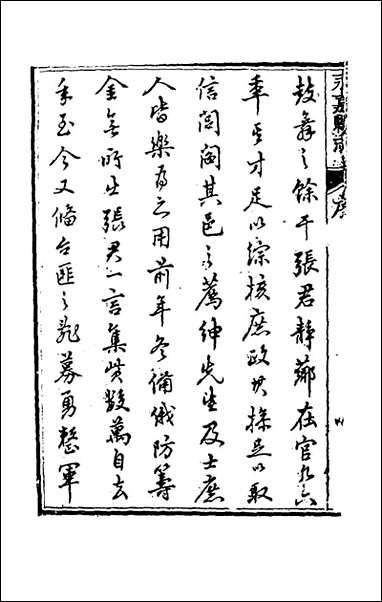 永嘉縣志 序
鼓舞之餘干張君靜薌在官九六
年其才足以綜核庶政其操足以取
信閭閻其邑之薦紳先生及士庶
人皆樂爲之用前年冬備俄防籌
金無所出張君一言集貲數萬自去
年至今又備台匪之亂募勇整軍